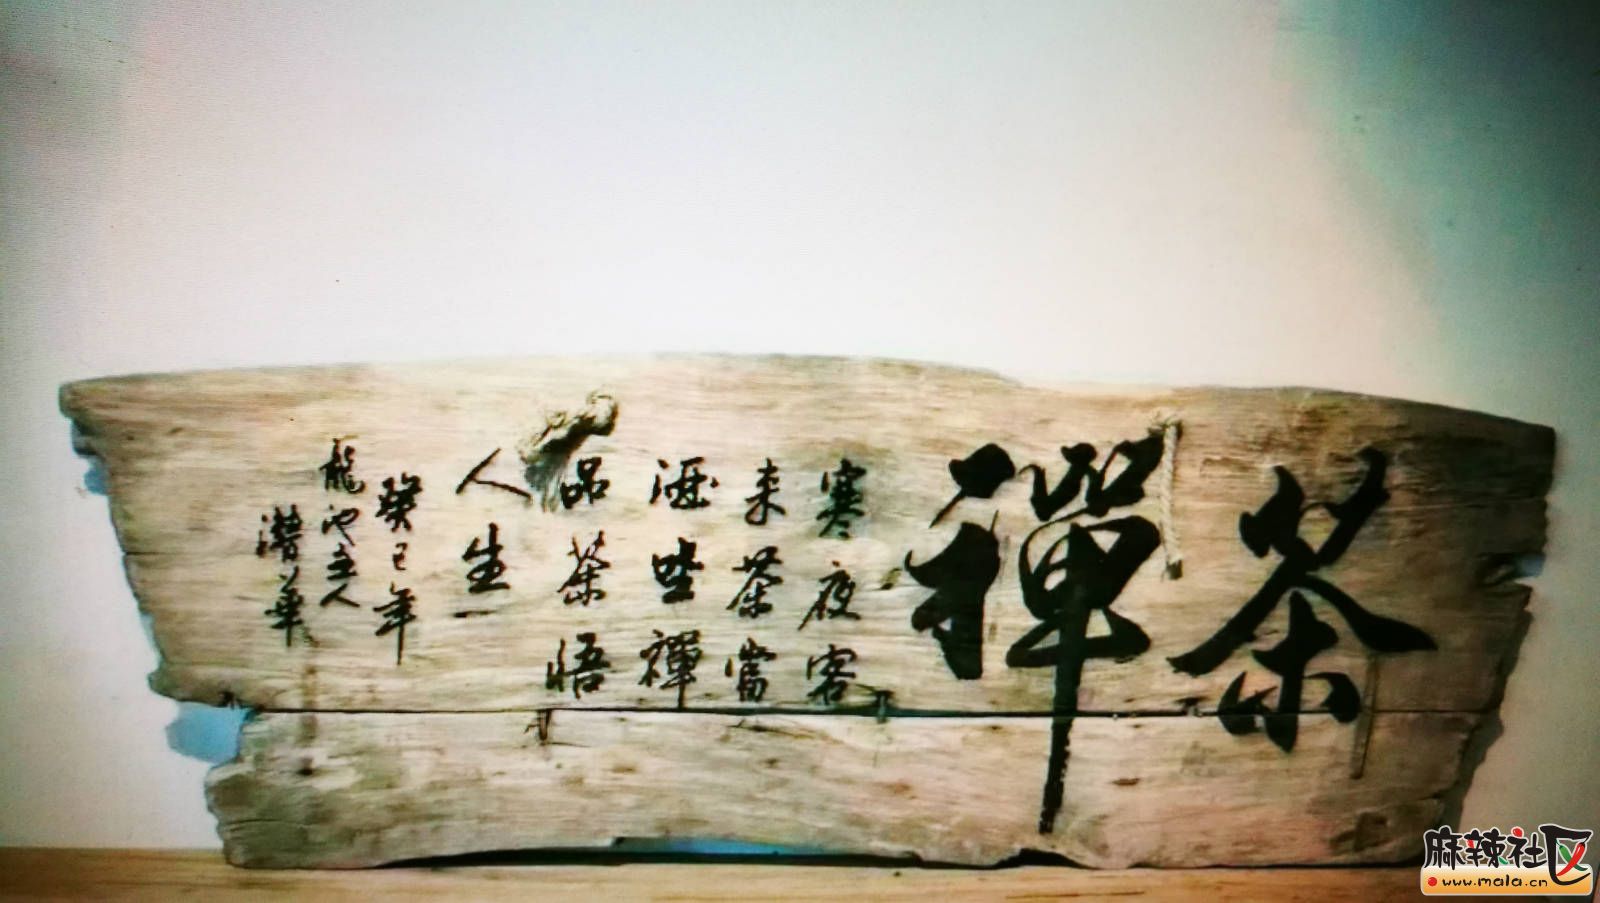 茶
禪
寒夜客
来茶當
酒坐禪
品茶悟
人生
癸巳年
龍池主人
潛華
麻辣社区
www.mala.cn